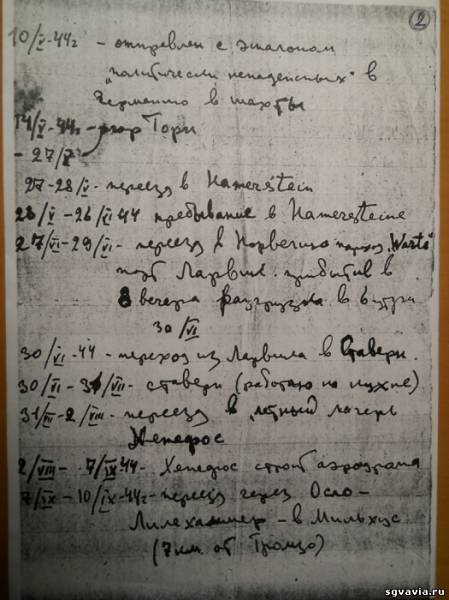 2
10/V-44г - отправлен с эшалоном
"политически ненадежных" в
Германию в шахты
14/V-44г - гор Торн
- 27/V
27-28/V - переезд в Hamerstein
28/V-26/VI 44 пребывание в Hamerstеine
27/VI-29/VI - переезд в Норвегию "Warta"
порт Ларвик. прибытие в
8 вечера разгрузка в 6 утра
30/VI
30/VI-44 - переход из Ларвика в Ставерн.
30/VI - 31/VII - ставерн (работаю на кухне)
31/VII-2/VIII - переезд в летный лагерь
Хенефос
2/VIII - 7/IX 44 - Хенефос строй аэродрома
7/IX - 10/IX-44г - переезд через Осло -
Лилехаммер - в Мильхус
(7 км. от Тронзо)
sgvavia.ru